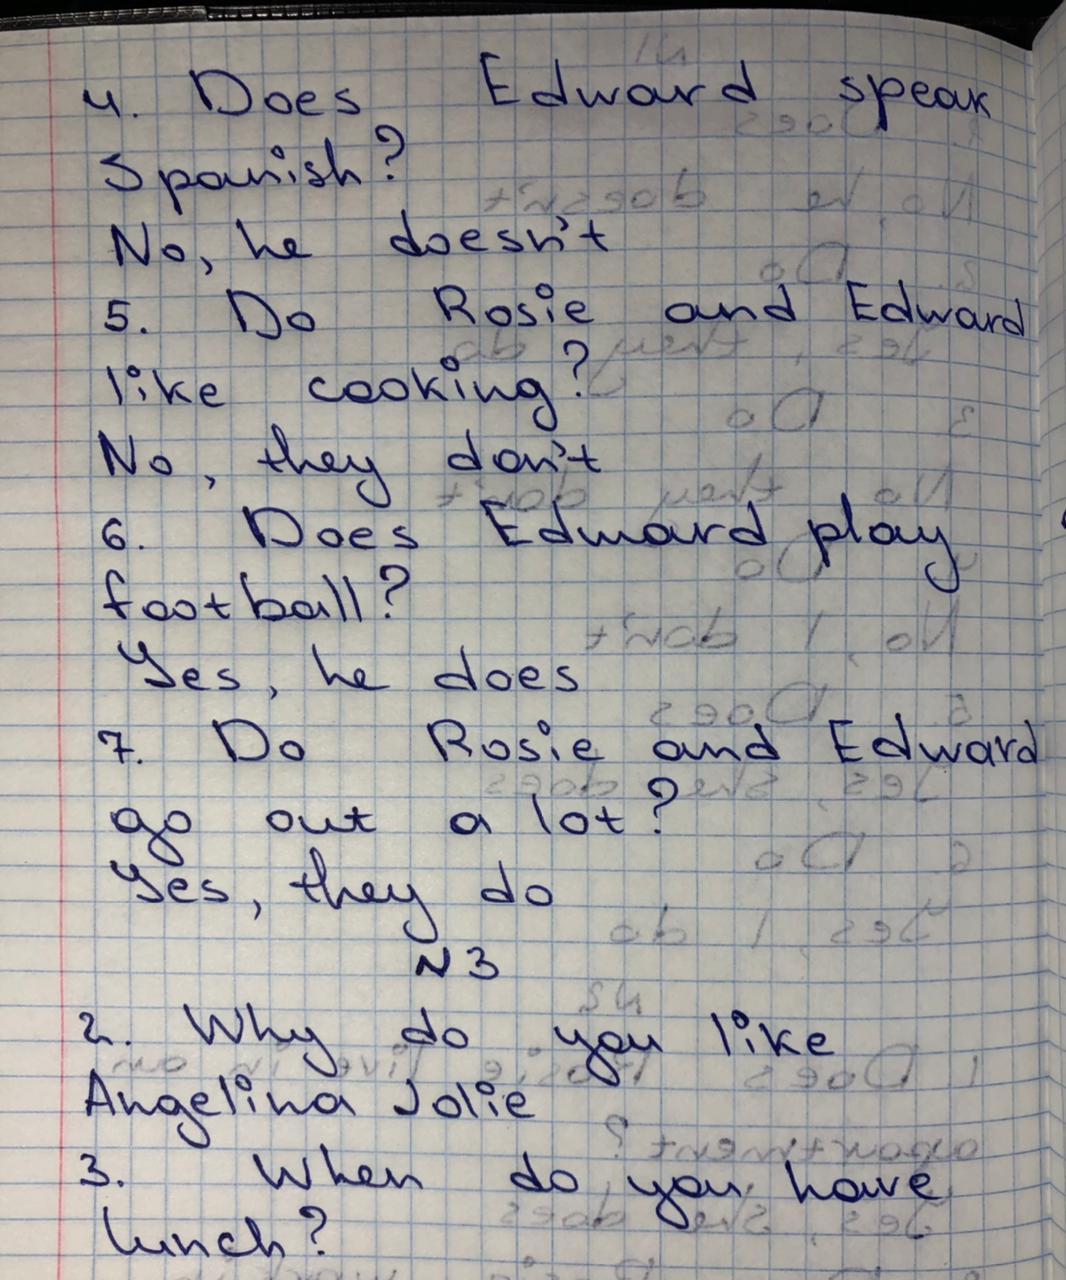 4. Does Edward speak
Spanish?
No, he doesn't
5. Do Rosie and Edward
like cooking?
No, they don't
6. Does Edward play
football?
Yes, he does
7. Do Rosie and Edward
go out a lot?
Yes, they do
N3
2. Why do you like
Angelina Jolie
3. When do you have
lunch?